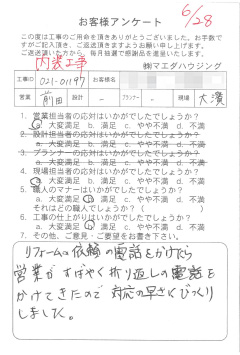 6/28
お客様アンケート
この度は工事のご用命を頂きありがとうございました。お手数で
すがご記入頂き、ご返送頂きますようお願い申し上げます。
ご返送頂いた方から、毎月抽選で感謝品を進呈いたします。
内装工事
㈱マエダハウジング
工事ID 021-01197 お客様名
営業 前田 設計 - プランナー - 現場 大濱
1. 営業担当者の応対はいかがでしたでしょうか?
a. 大変満足 b. 満足 c. やや不満 d. 不満
2. 設計担当者の応対はいかがでしたでしょうか?
a. 大変満足 b. 満足 c. やや不満 d. 不満
3. プランナーの応対はいかがでしたでしょうか?
a. 大変満足 b. 満足 c. やや不満 d. 不満
4. 現場担当者の応対はいかがでしたでしょうか?
a. 大変満足 b. 満足 c. やや不満 d. 不満
5. 職人のマナーはいかがでしたでしょうか?
a. 大変満足 b. 満足 c. やや不満 d. 不満
それはどの職人でしょう(
6. 工事の仕上がりはいかがでしたでしょうか?
a. 大変満足 b. 満足 c. やや不満 d. 不満
7. その他、ご意見・ご要望をお書き下さい。
リフォームの依頼の電話をかけたら
営業がすばやく折り返しの電話を
かけてきたので 対応の早さにびっくり
しました。